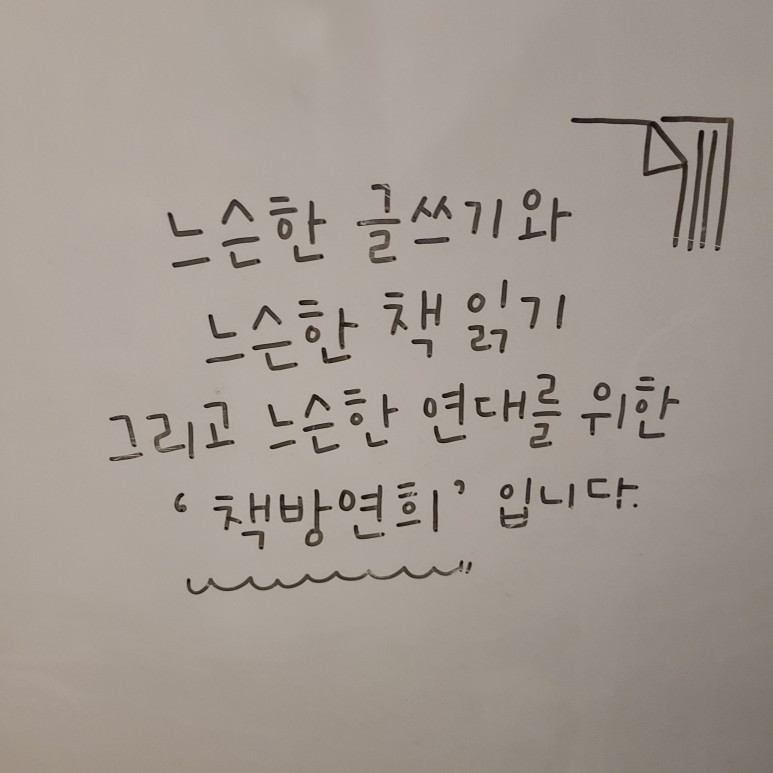 느슨한 글쓰기와
느슨한 책 읽기
그리고 느슨한 연대를 위한
‘책방연희’ 입니다.